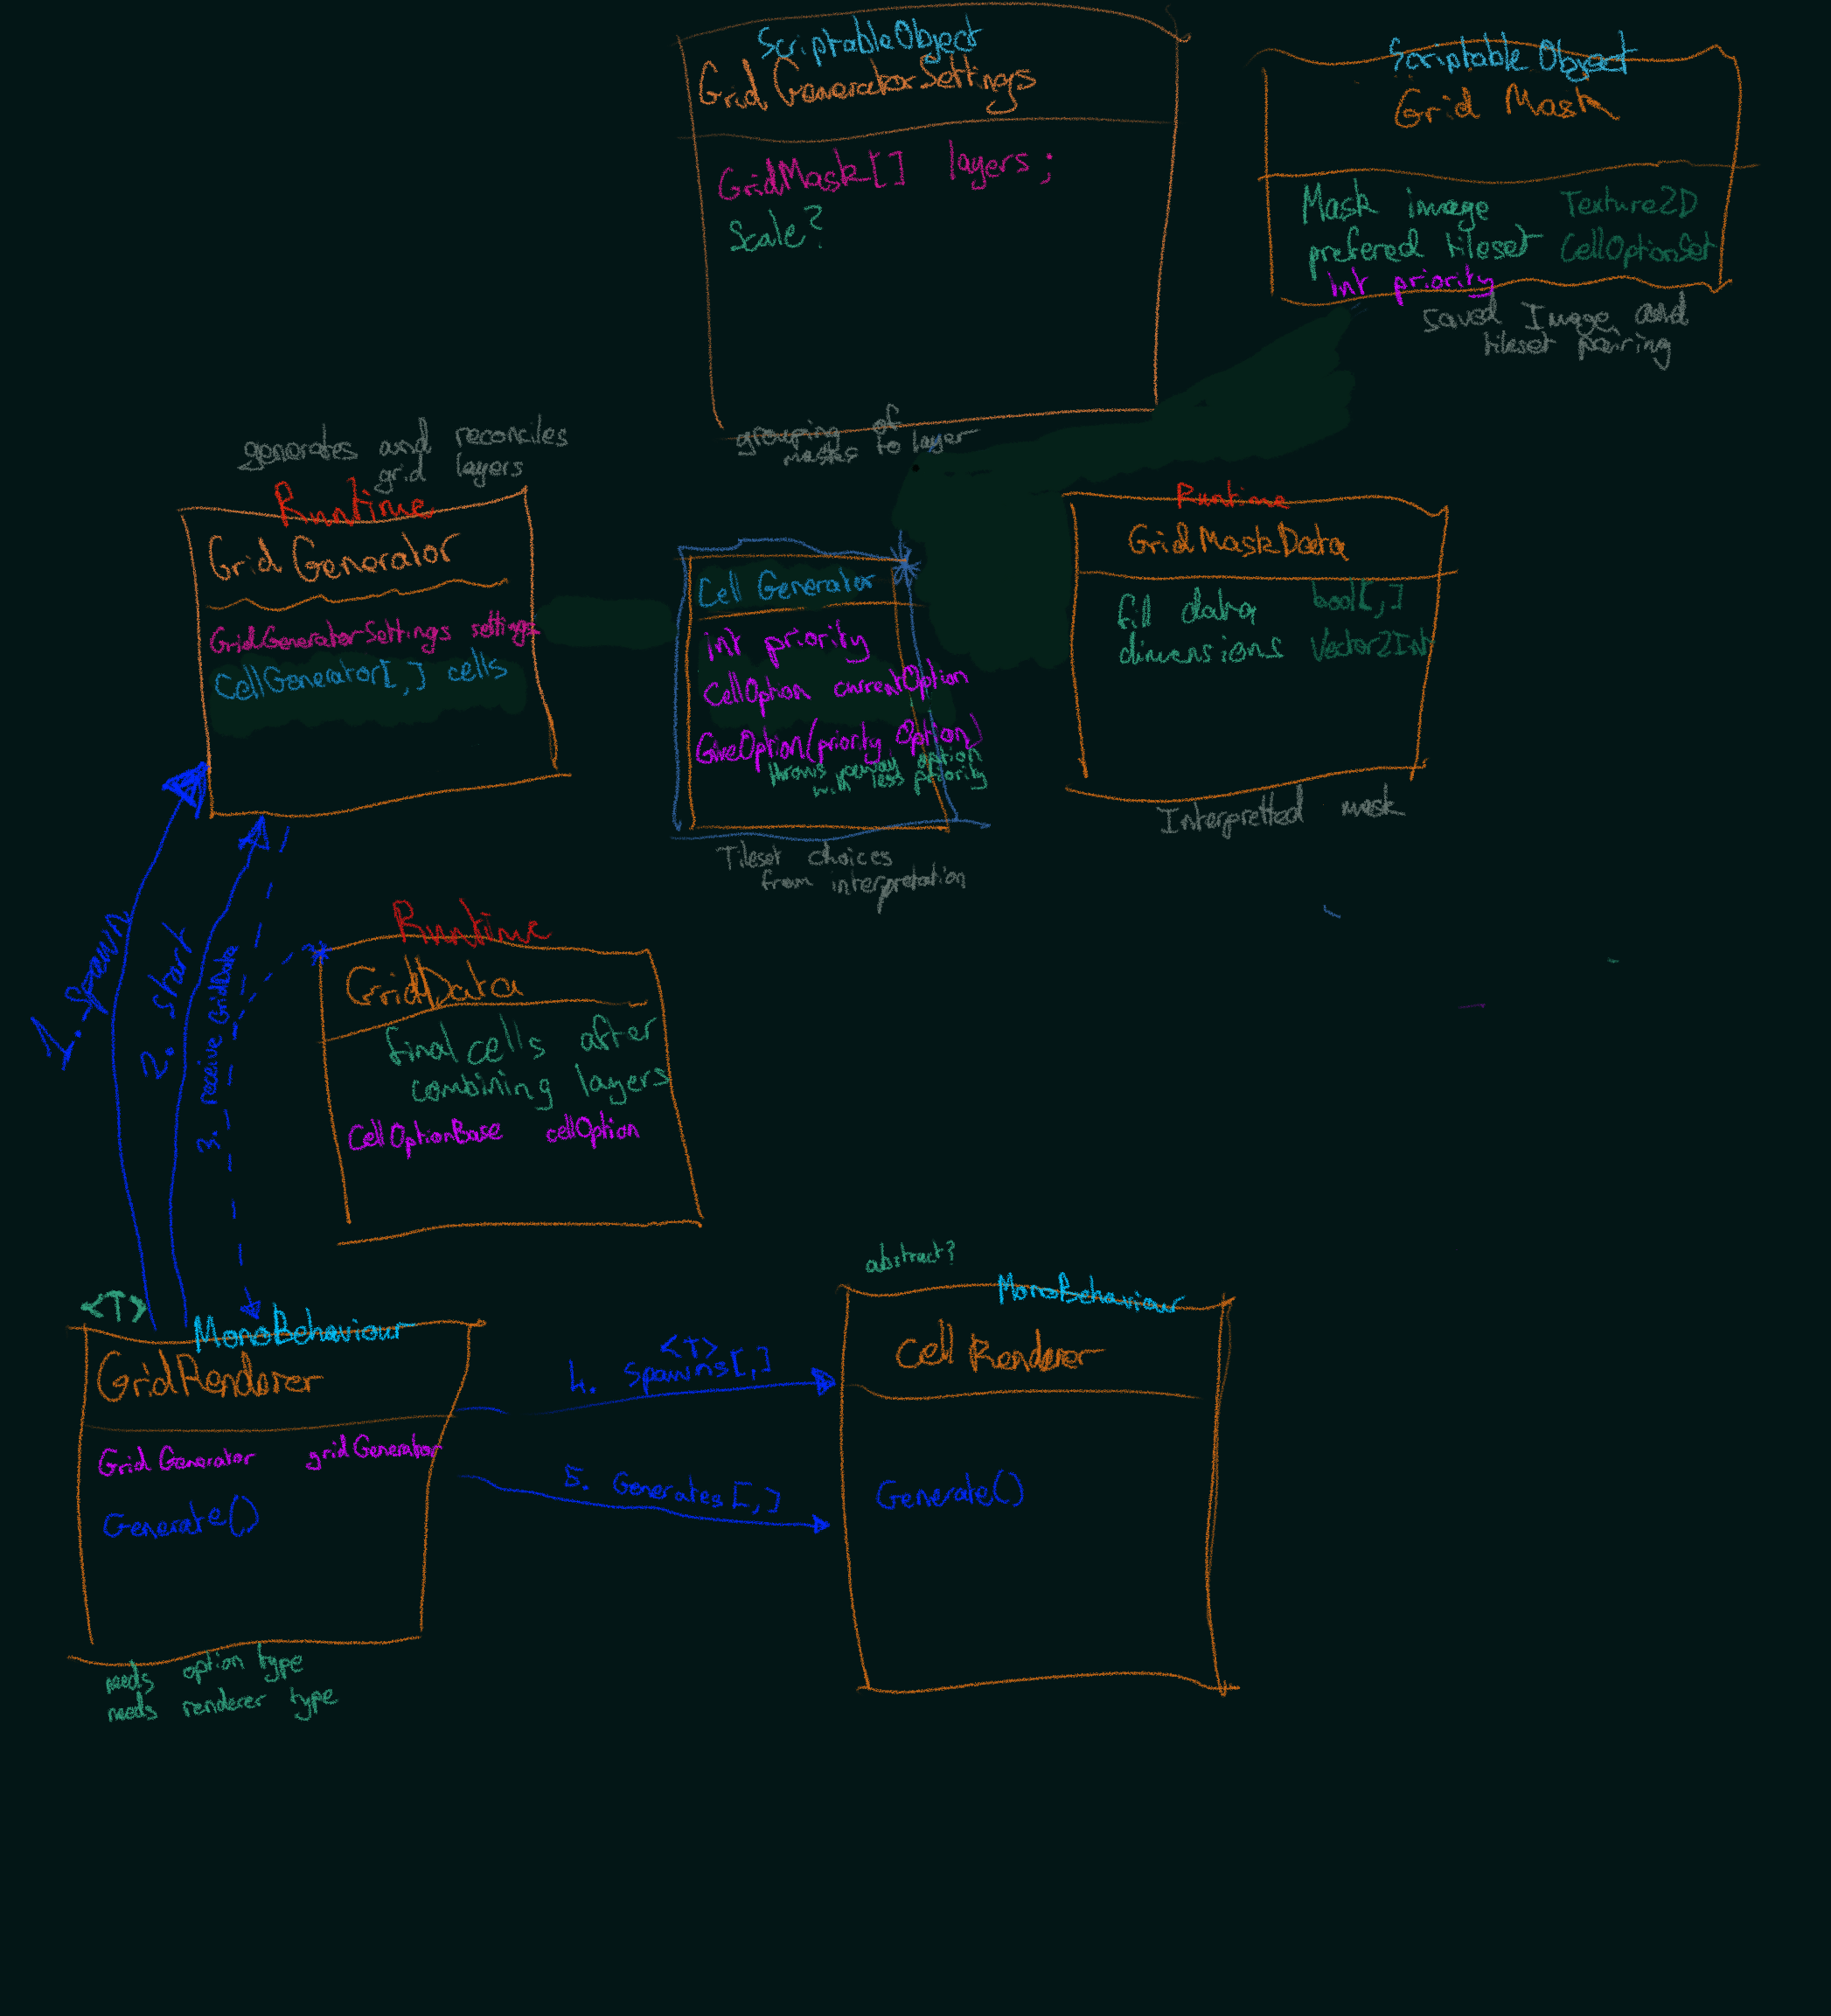 ScriptableObject
GridGeneratorSettings
GridMask[] layers;
Scale?
grouping of
masks to layer
Scriptable Object
Grid Mask
Mask image Texture2D
prefered tileset CellOptionSet
int priority
Saved Image and
tileset pairing
generates and reconciles
grid layers
Runtime
Grid Generator
GridGeneratorSettings settings
CellGenerator[,] cells
Cell Generator
int priority
CellOption currentOption
GiveOption(priority, Option)
throws away option
with less priority
Tileset choices
from interpretation
Runtime
GridMaskData
fill data bool[,]
dimensions Vector2Int
Interpretted mask
1. Spawn
2. start
3. receive GridData
Runtime
GridData
final cells after
combining layers
CellOptionBase cellOption
<T>
MonoBehaviour
GridRenderer
Grid Generator gridGenerator
Generate()
needs option type
needs renderer type
<T>
4. Spawns[,]
5. Generates[,]
abstract?
MonoBehaviour
Cell Renderer
Generate()